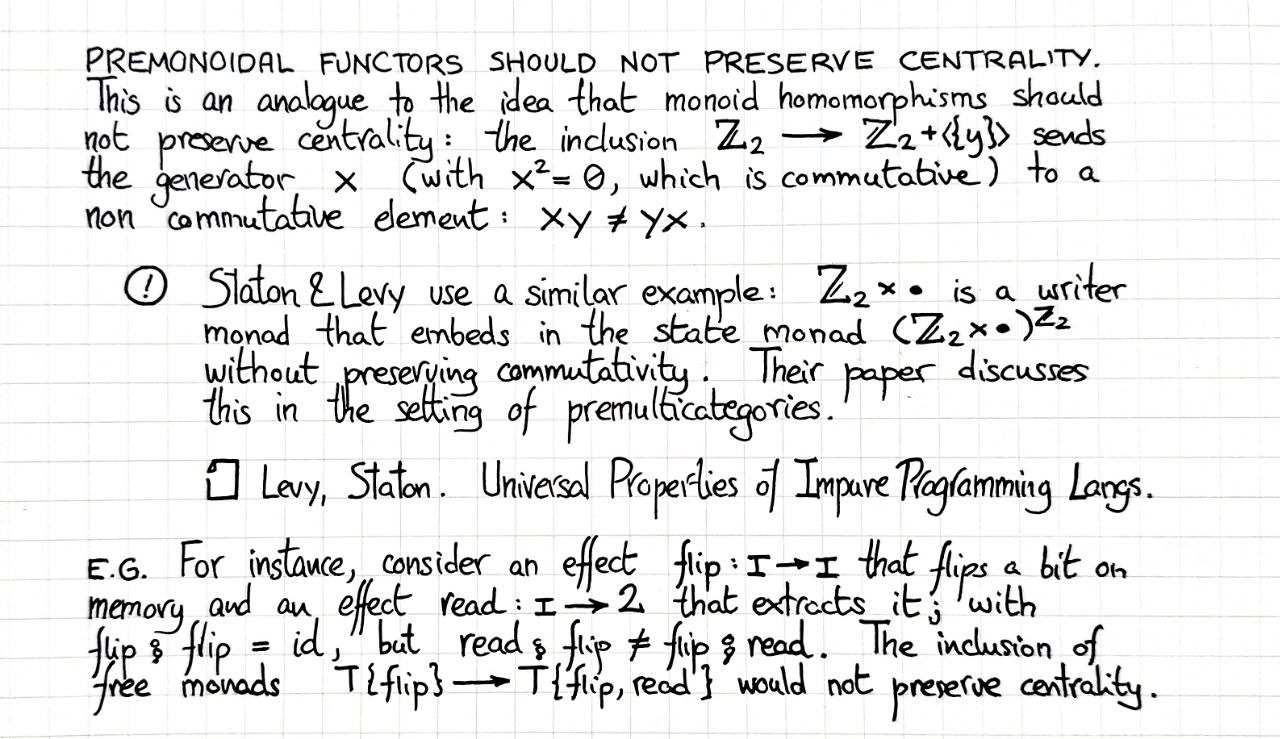 PREMONOIDAL FUNCTORS SHOULD NOT PRESERVE CENTRALITY.
This is an analogue to the idea that monoid homomorphisms should
not preserve centrality: the inclusion ℤ₂ → ℤ₂+⟨{y}⟩ sends
the generator x (with x²=0, which is commutative) to a
non commutative element: xy ≠ yx.
! Staton & Levy use a similar example: ℤ₂ × • is a writer
monad that embeds in the state monad (ℤ₂×•)^ℤ₂
without preserving commutativity. Their paper discusses
this in the setting of premulticategories.
Levy, Staton. Universal Properties of Impure Programming Langs.
E.G. For instance, consider an effect flip: I → I that flips a bit on
memory and an effect read: I → 2 that extracts it; with
flip ⨾ flip = id, but read ⨾ flip ≠ flip ⨾ read. The inclusion of
free monads T{flip} → T{flip, read} would not preserve centrality.